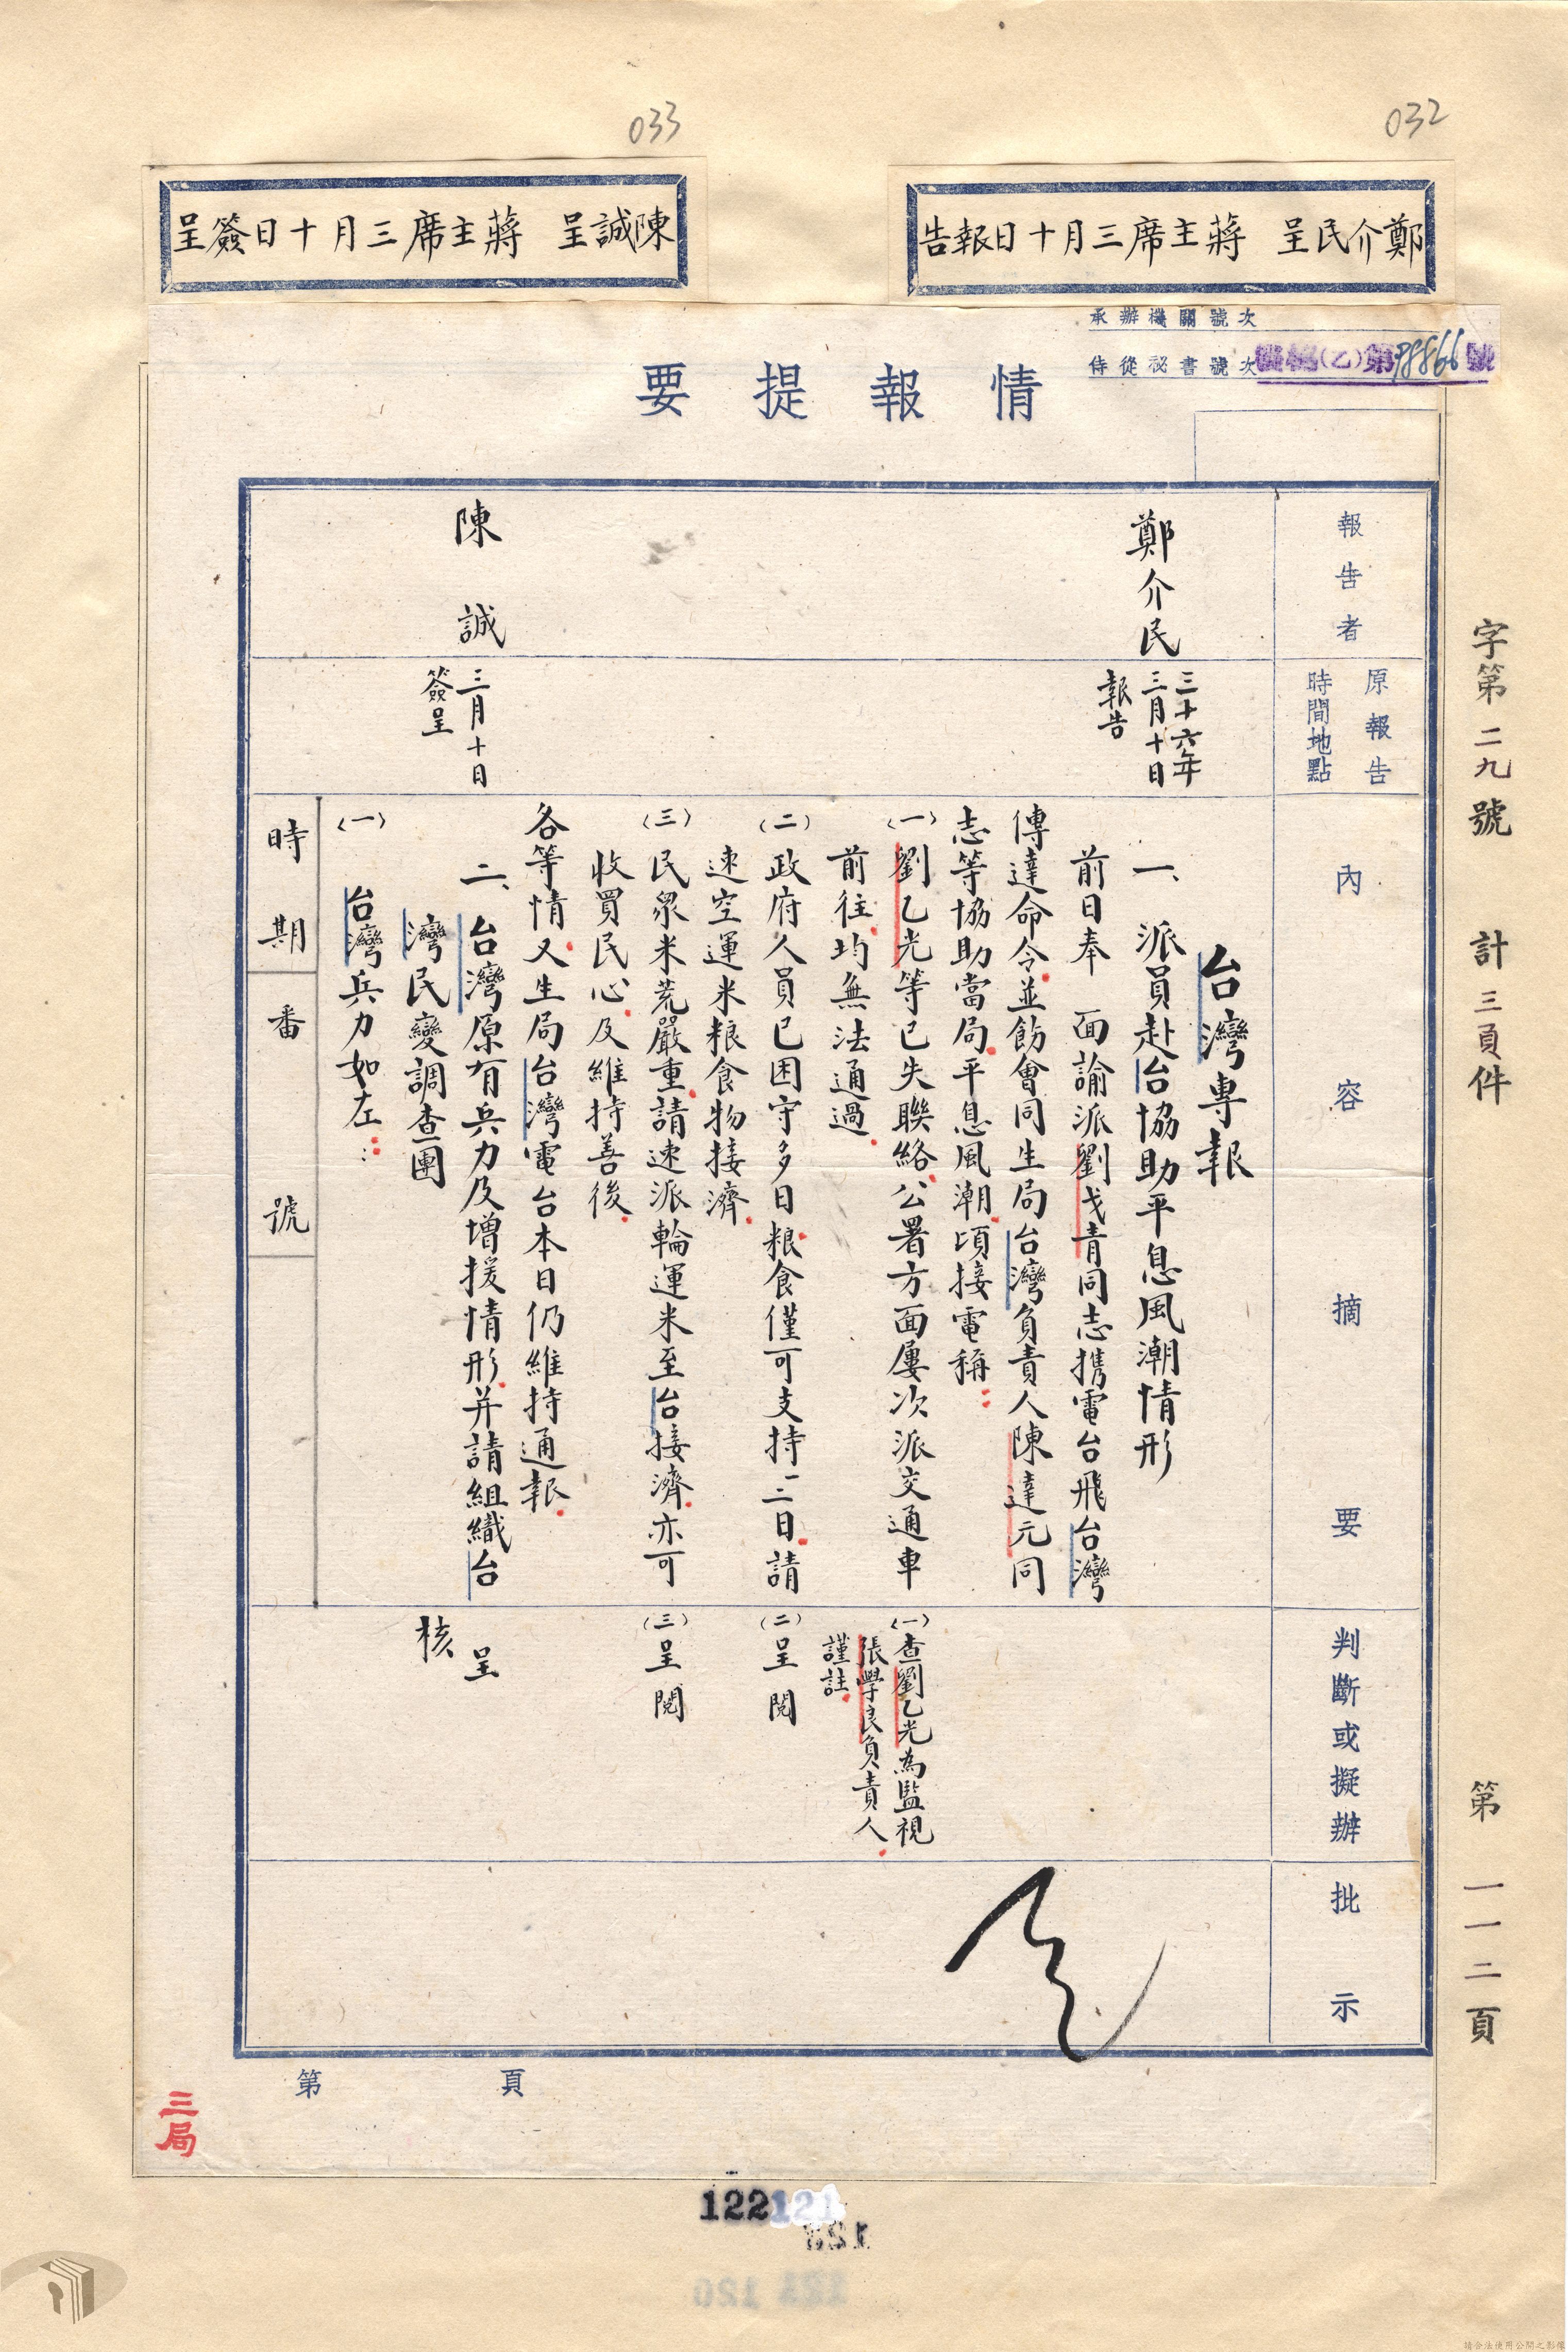 032
033
鄭介民呈　蔣主席三月十日報告
陳誠呈　蔣主席三月十日簽呈
承辦機關號次
侍從祕書號次
(乙)第98866號
情報提要
報告者
原報告
時間地點
內容摘要
判斷或擬辦
批示
鄭介民
三十六年
三月十日
報告
台灣專報
一、派員赴台協助平息風潮情形
前日奉　面諭派劉戈青同志攜電台飛台灣
傳達命令並飭會同生局台灣負責人陳達元同
志等協助當局平息風潮頃接電稱：
(一)劉乙光等已失聯絡公署方面屢次派交通車
前往均無法通過
(二)政府人員已困守多日粮食僅可支持一二日請
速空運米粮食物接濟
(三)民眾米荒嚴重請速派輪運米至台接濟亦可
收買民心及維持善後
各等情又生局台灣電台本日仍維持通報
(一)查劉乙光為監視
張學良負責人
謹註
(二)呈閱
(三)呈閱
陳誠
三月十日
簽呈
二、台灣原有兵力及增援情形并請組織台
灣民變調查團
(一)台灣兵力如左：
時期
番號
呈
核
字第二九號　計三頁件　第一一二頁
第　頁
三局
122121